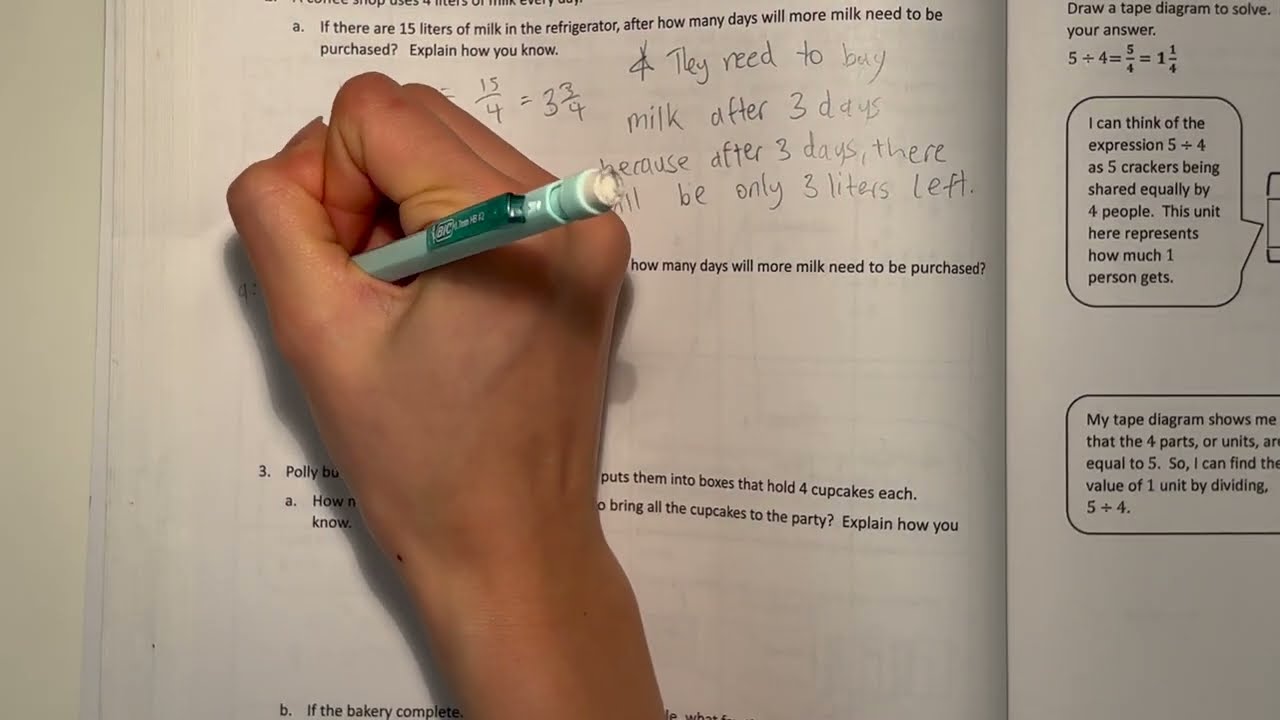 a. If there are 15 liters of milk in the refrigerator, after how many days will more milk need to be
purchased? Explain how you know.
= 15/4 = 3 3/4
They need to buy
milk after 3 days
because after 3 days, there
be only 3 liters left.
how many days will more milk need to be purchased?
3. Polly
puts them into boxes that hold 4 cupcakes each.
a. How
bring all the cupcakes to the party? Explain how you
know.
b. If the bakery
Draw a tape diagram to solve.
your answer.
5 ÷ 4 = 5/4 = 1 1/4
I can think of the
expression 5 ÷ 4
as 5 crackers being
shared equally by
4 people. This unit
here represents
how much 1
person gets.
My tape diagram shows me
that the 4 parts, or units, are
equal to 5. So, I can find the
value of 1 unit by dividing,
5 ÷ 4.
BIC 0.7mm HB #2